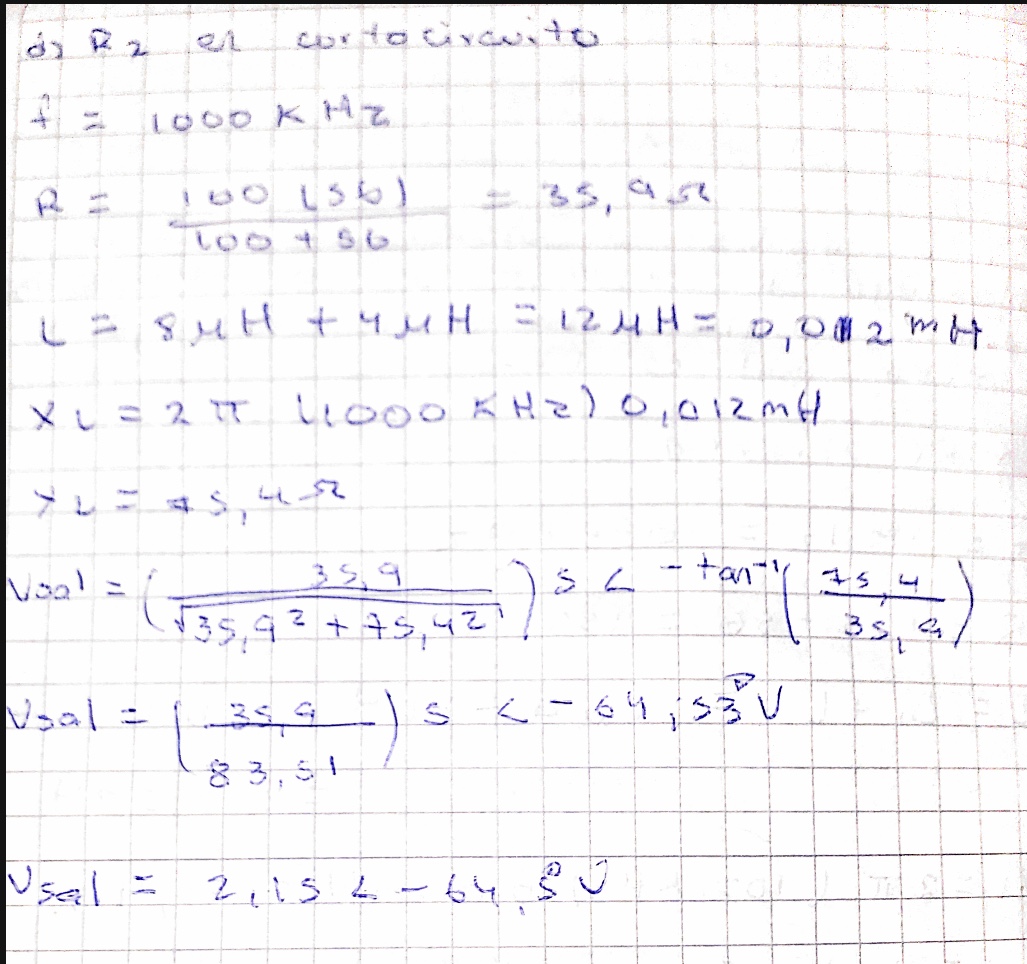 d) R2 en cortocircuito
f = 1000 KHz
R = 100 (56) / 100 + 56 = 35,9 Ω
L = 8 μH + 4 μH = 12 μH = 0,012 mH
XL = 2 π (1000 KHz) 0,012 mH
XL = 75,4 Ω
Vsal = ( 35,9 / √35,9² + 75,4² ) 5 < -tan⁻¹ ( 75,4 / 35,9 )
Vsal = ( 35,9 / 83,51 ) 5 < -64,53° V
Vsal = 2,15 < -64,5° V